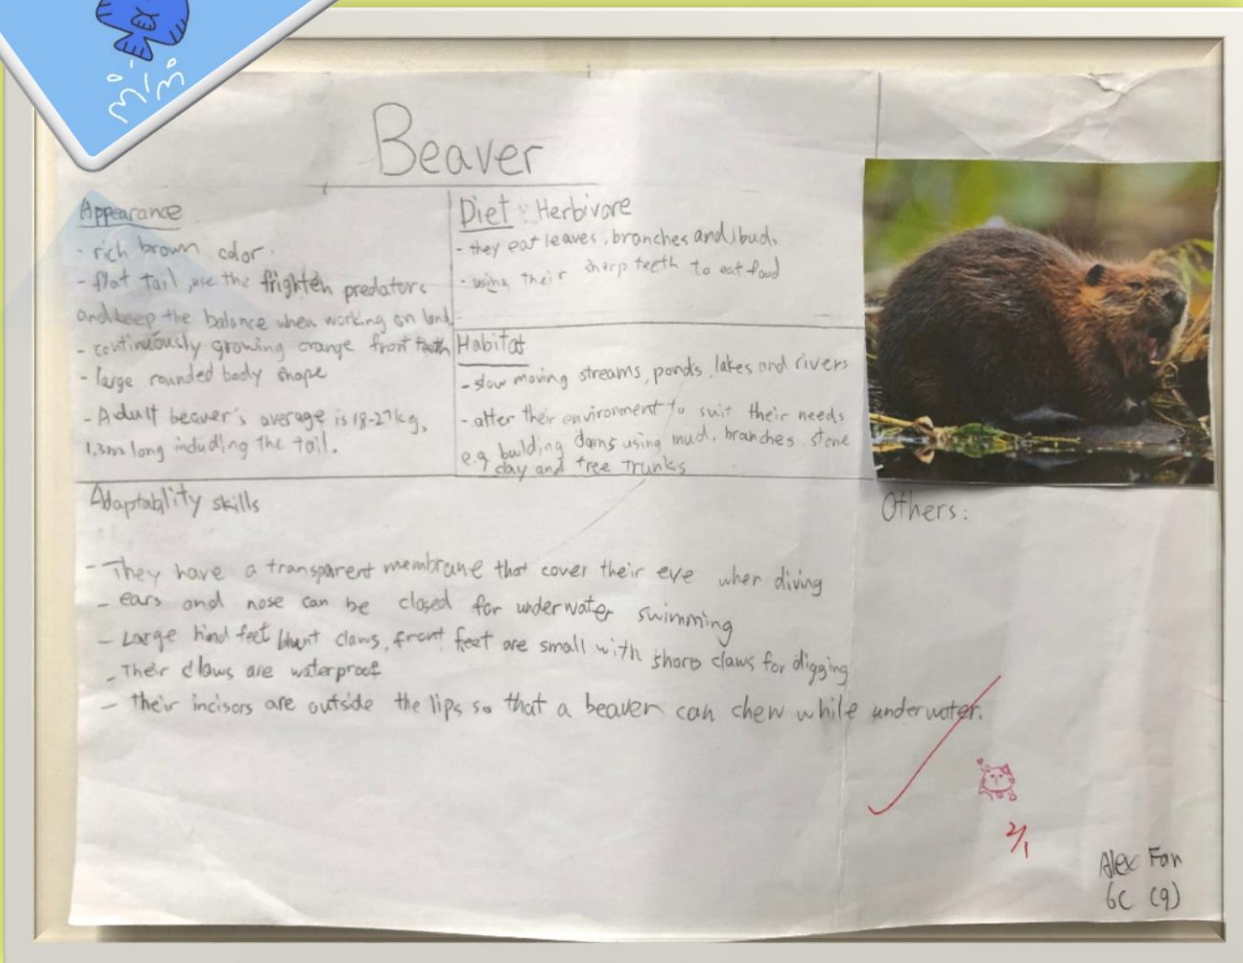 Beaver
Appearance
- rich brown color.
- flat tail, use the frighten predators
and keep the balance when working on land
- continuously growing orange front teeth
- large rounded body shape
- Adult beaver's average is 18-27kg,
1.3m long including the tail.
Diet : Herbivore
- they eat leaves, branches and bud.
- using their sharp teeth to eat food
Habitat
- slow moving streams, ponds, lakes and rivers
- alter their environment to suit their needs
e.g building dams using mud, branches, stone
clay and tree trunks
Adaptablity skills
- They have a transparent membrane that cover their eye when diving
- ears and nose can be closed for underwater swimming
- Large hind feet blunt claws, front feet are small with sharp claws for digging
- Their claws are waterproof
- their incisors are outside the lips so that a beaver can chew while underwater.
Others:
2/1
Alex Fan
6C (9)